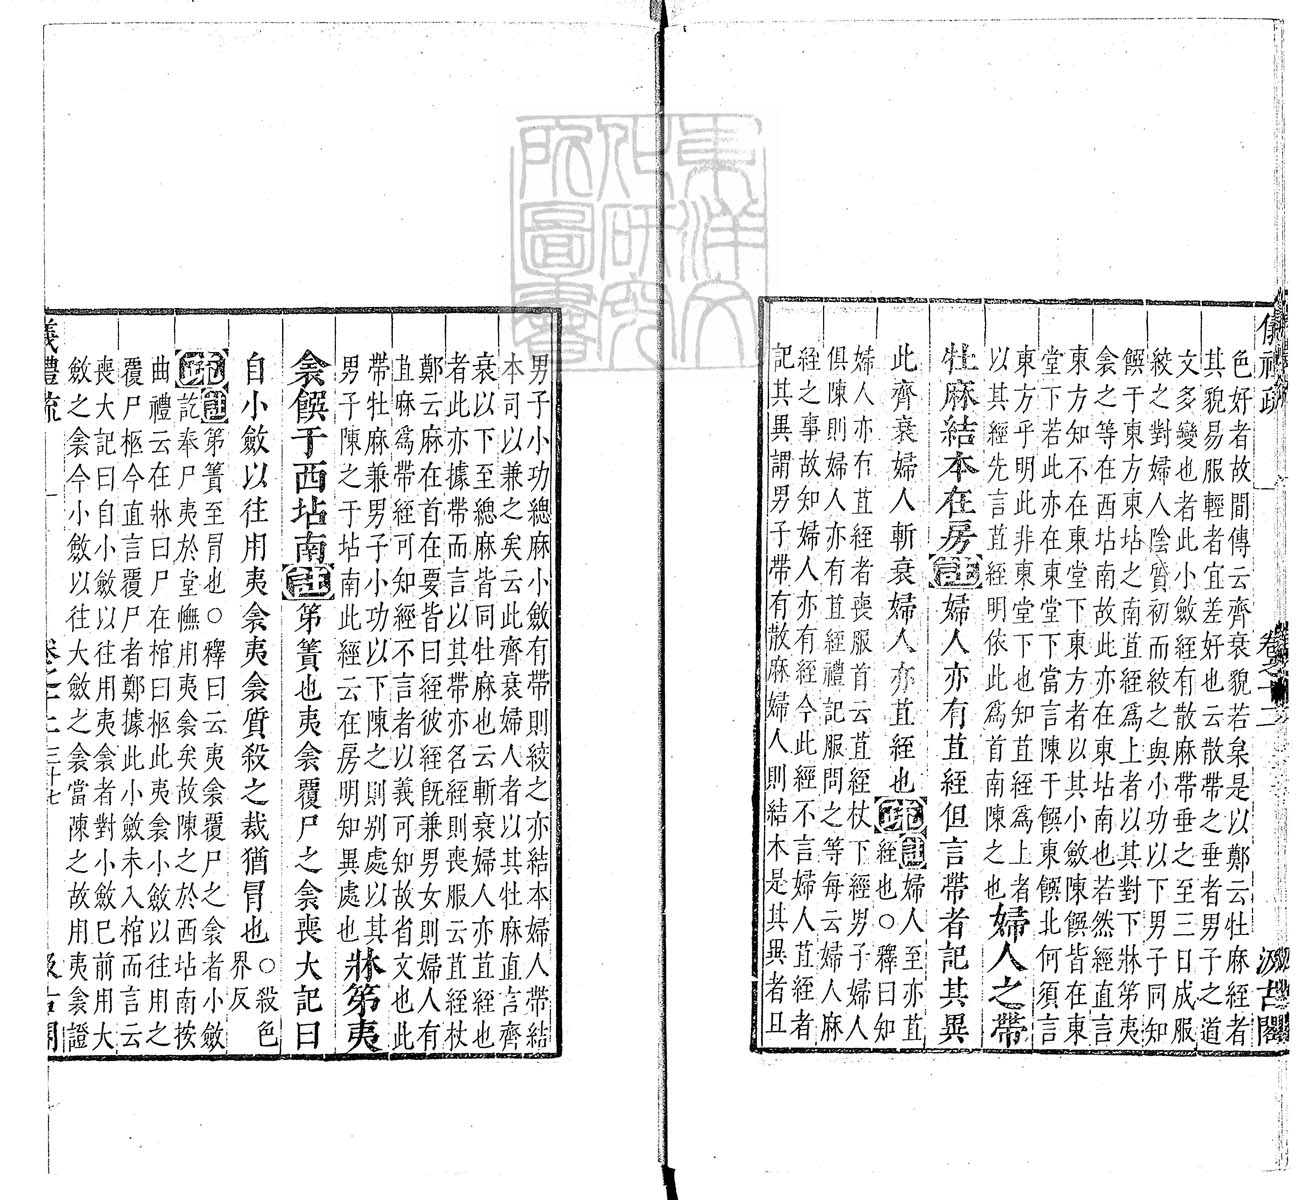 儀禮疏 卷之十二 汲古閣
色好者故間傳云齊衰貌若枲是以鄭云牡麻絰者
其貌易服輕者宜差好也云散帶之垂者男子之道
文多變也者此小斂絰有散麻帶垂之至三日成服
絞之對婦人陰質初而絞之與小功以下男子同知
饌于東方東坫之南苴絰爲上者以其對下牀笫夷
衾之等在西坫南故此亦在東坫南也若然經直言
東方知不在東堂下東方者以其小斂陳饌皆在東
堂下若此亦在東堂下當言陳于饌東饌北何須言
東方乎明此非東堂下也知苴絰爲上者
以其經先言苴絰明依此爲首南陳之也婦人之帶
牡麻結本在房註婦人亦有苴絰但言帶者記其異
此齊衰婦人斬衰婦人亦苴絰也疏註婦人至亦苴
絰也○釋曰知
婦人亦有苴絰者喪服首云苴絰杖下經男子婦人
俱陳則婦人亦有苴絰禮記服問之等每云婦人麻
絰之事故知婦人亦有絰今此經不言婦人苴絰者
記其異謂男子帶有散麻婦人則結本是其異者且
男子小功緦麻小斂有帶則絞之亦結本婦人帶結
本司以兼之矣云此齊衰婦人者以其牡麻直言齊
衰以下至緦麻皆同牡麻也云斬衰婦人亦苴絰也
者此亦據帶而言以其帶亦名絰則喪服云苴絰杖
鄭云麻在首在要皆曰絰彼絰既兼男女則婦人有
苴麻爲帶絰可知經不言者以義可知故省文也此
帶牡麻兼男子小功以下陳之則别處以其
男子陳之于坫南此經云在房明知異處也牀笫夷
衾饌于西坫南註笫簀也夷衾覆尸之衾喪大記曰
自小斂以往用夷衾夷衾質殺之裁猶冒也○殺色
界反
疏註笫簀至冒也○釋曰云夷衾覆尸之衾者小斂
訖奉尸夷於堂幠用夷衾矣故陳之於西坫南按
曲禮云在牀曰尸在棺曰柩此夷衾小斂以往用之
覆尸柩今直言覆尸者鄭據此小斂未入棺而言云
喪大記曰自小斂以往用夷衾者對小斂已前用大
斂之衾今小斂以往大斂之衾當陳之故用夷衾證
儀禮疏 卷之十二 三十七 汲古閣
東洋文
化研究
所圖書